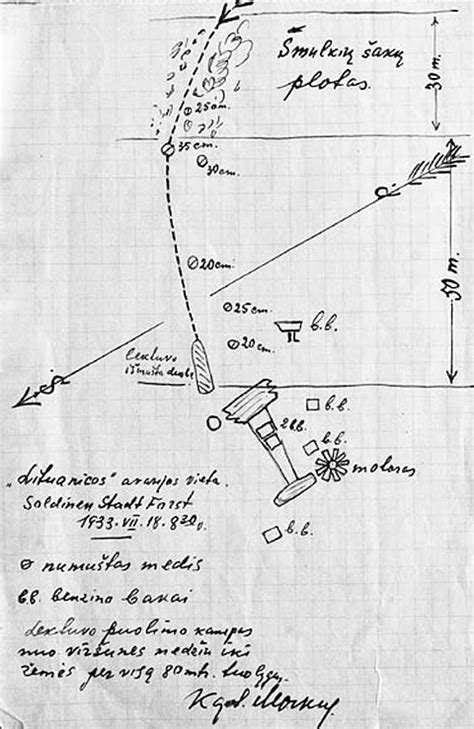 Smulkių šakų
plotas.
30 m.
25 cm.
35 cm.
30 cm.
20 cm.
50 m.
25 cm.
20 cm.
b.b.
lėktuvo
išmušta duobė
b.b.
2 b.b.
b.b.
motoras
b.b.
„Lituanicos" avarijos vieta.
Soldinen Stadt Forst
1933. VII. 18. 8 30 v.
ø numuštas medis
b.b. benzino bakai
Lėktuvo puolimo kampas
nuo viršūnės medžių iki
žemės per visą 80 mtr. tuolygų.